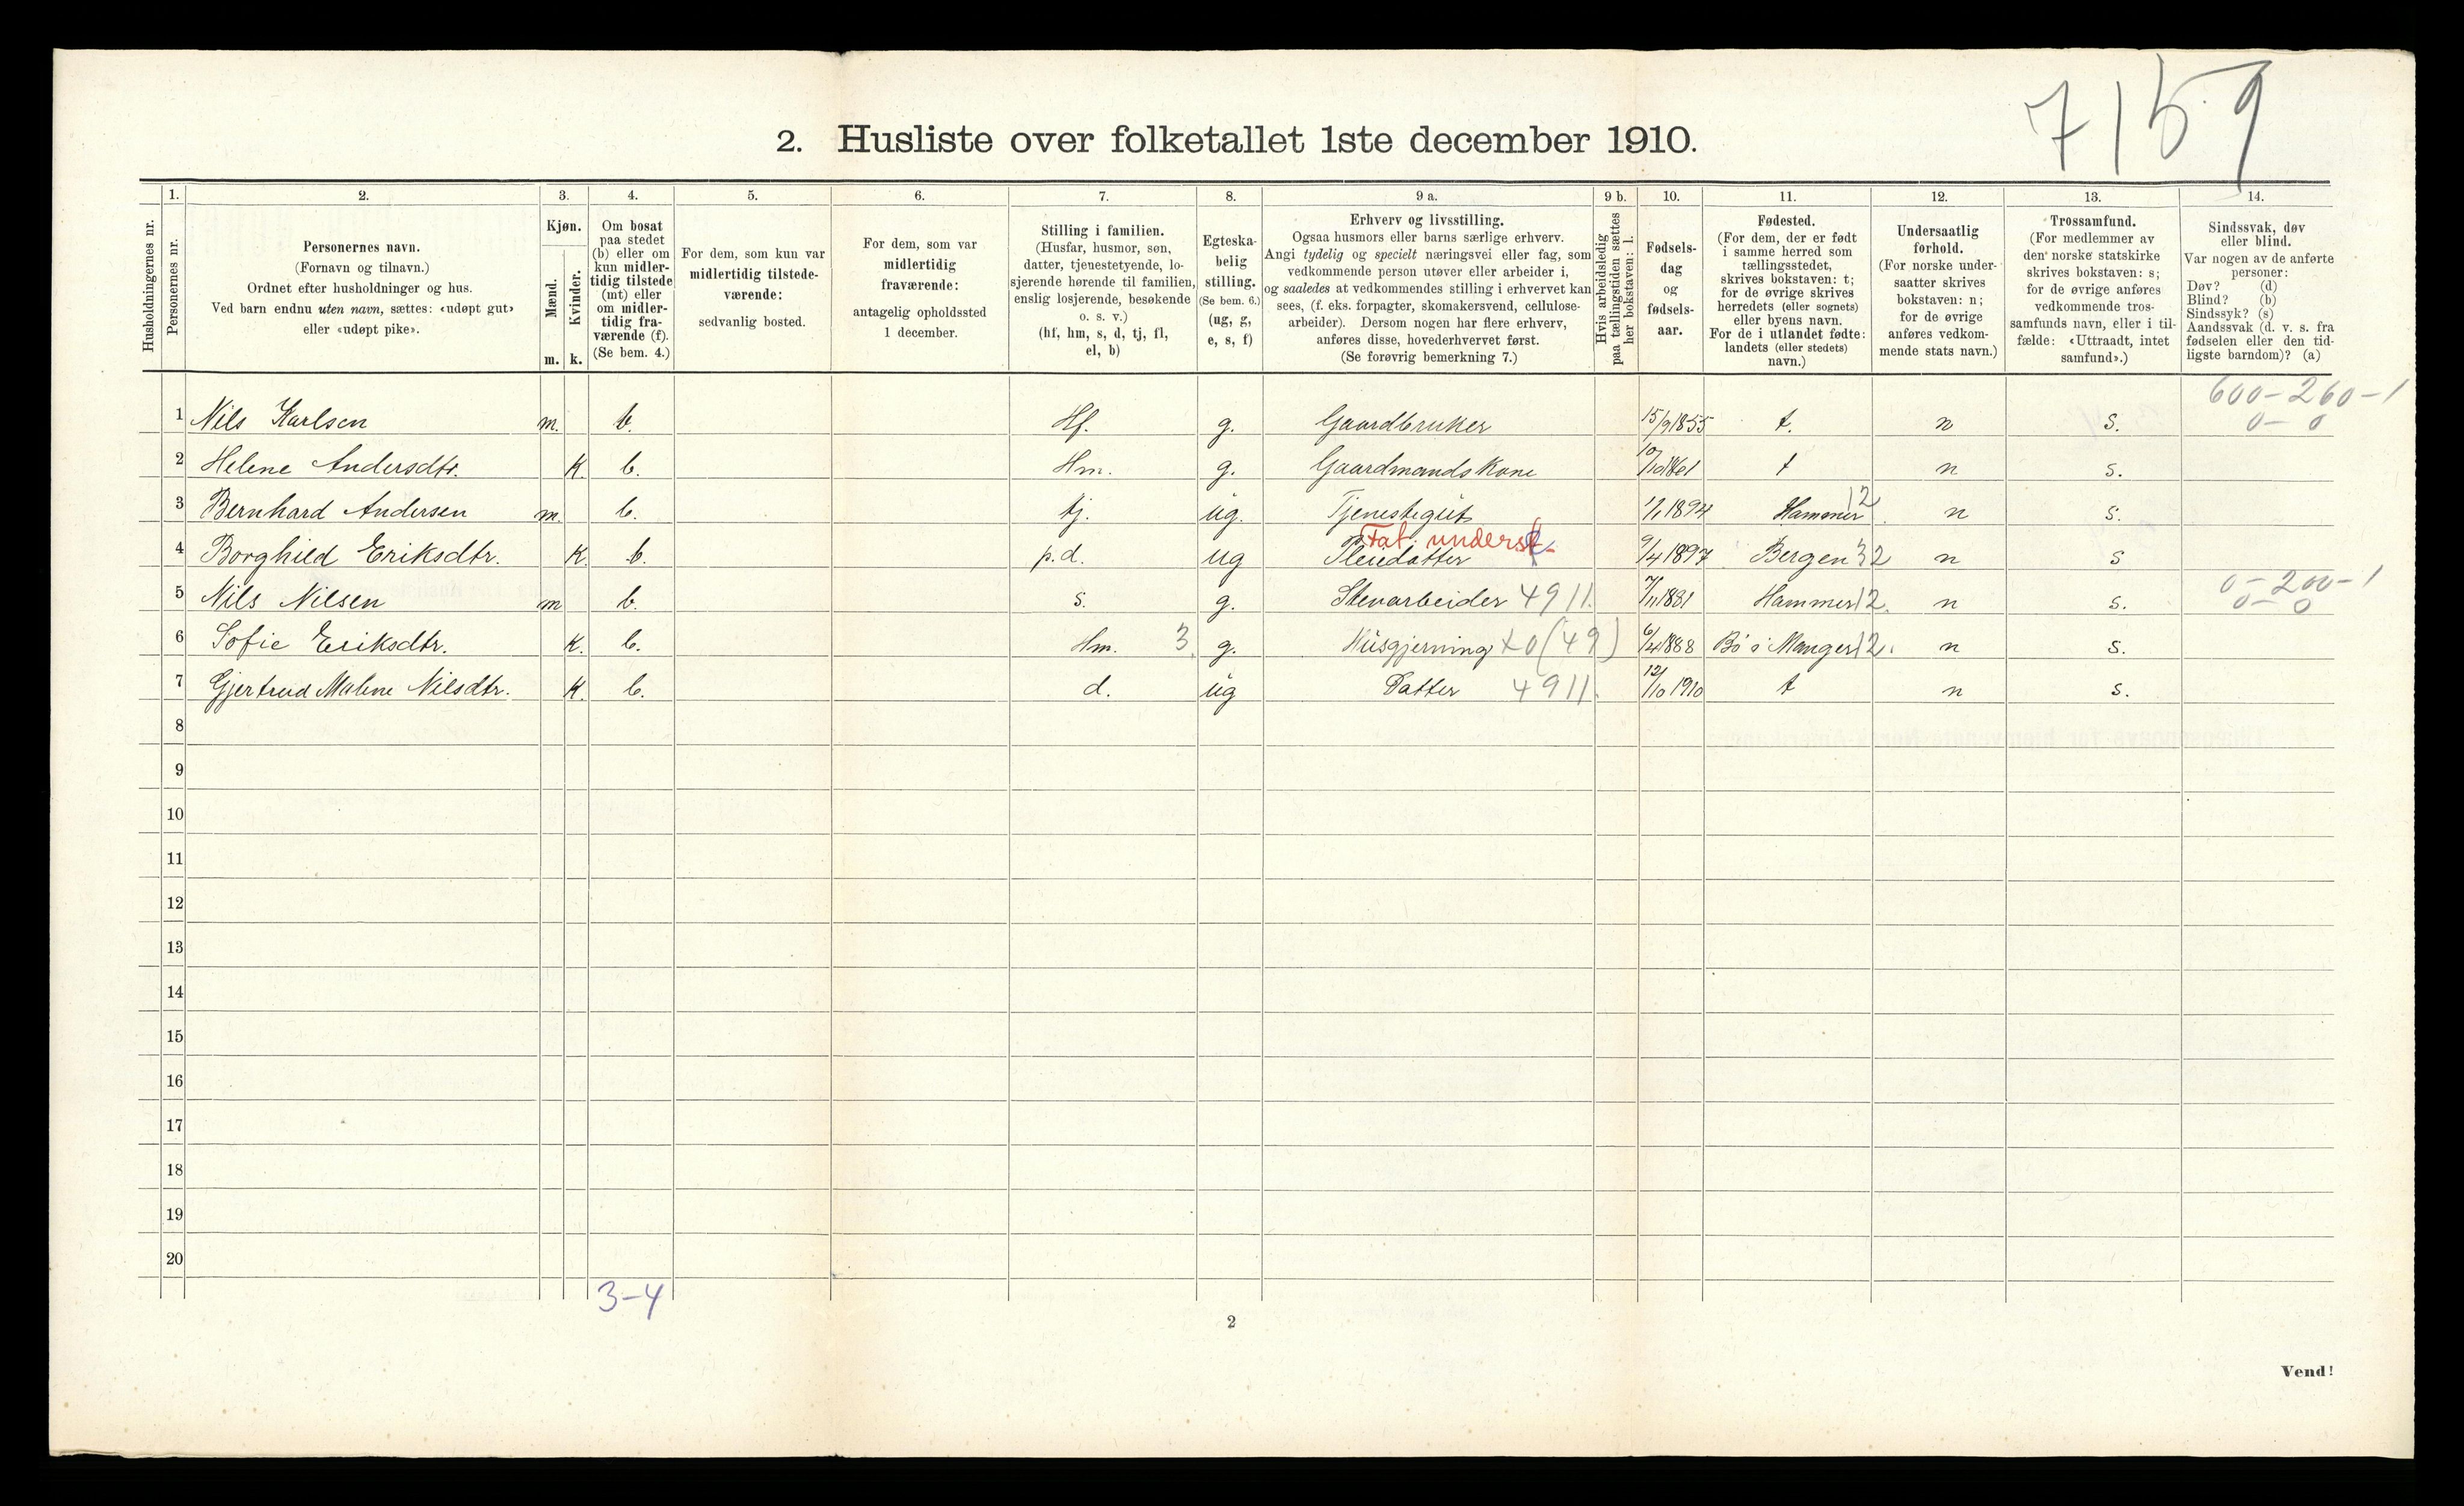 7159
2. Husliste over folketallet 1ste december 1910.
Husholdningernes nr.
1.
Personernes nr.
2.
Personernes navn.
(Fornavn og tilnavn.)
Ordnet efter husholdninger og hus.
Ved barn endnu uten navn, sættes: «udøpt gut»
eller «udøpt pike».
3.
Kjøn.
Mænd.
m.
Kvinder.
k.
4.
Om bosat
paa stedet
(b) eller om
kun midler-
tidig tilstede
(mt) eller
om midler-
tidig fra-
værende (f).
(Se bem. 4.)
5.
For dem, som kun var
midlertidig tilstede-
værende:
sedvanlig bosted.
6.
For dem, som var
midlertidig
fraværende:
antagelig opholdssted
1 december.
7.
Stilling i familien.
(Husfar, husmor, søn,
datter, tjenestetyende, lo-
sjerende hørende til familien,
enslig losjerende, besøkende
o. s. v.)
(hf, hm, s, d, tj, fl,
el, b)
8.
Egteska-
belig
stilling.
(Se bem. 6.)
(ug, g,
e, s, f)
9 a.
Erhverv og livsstilling.
Ogsaa husmors eller barns særlige erhverv.
Angi tydelig og specielt næringsvei eller fag, som
vedkommende person utøver eller arbeider i,
og saaledes at vedkommendes stilling i erhvervet kan
sees, (f. eks. forpagter, skomakersvend, cellulose-
arbeider). Dersom nogen har flere erhverv,
anføres disse, hovederhvervet først.
(Se forøvrig bemerkning 7.)
9 b.
Hvis arbeidsledig
paa tællingstiden sættes
her bokstaven: l.
10.
Fødsels-
dag
og
fødsels-
aar.
11.
Fødested.
(For dem, der er født
i samme herred som
tællingsstedet,
skrives bokstaven: t;
for de øvrige skrives
herredets (eller sognets)
eller byens navn.
For de i utlandet fødte:
landets (eller stedets)
navn.)
12.
Undersaatlig
forhold.
(For norske under-
saatter skrives
bokstaven: n;
for de øvrige
anføres vedkom-
mende stats navn.)
13.
Trossamfund.
(For medlemmer av
den norske statskirke
skrives bokstaven: s;
for de øvrige anføres
vedkommende tros-
samfunds navn, eller i til-
fælde: «Uttraadt, intet
samfund».)
14.
Sindssvak, døv
eller blind.
Var nogen av de anførte
personer:
Døv? (d)
Blind? (b)
Sindssyk? (s)
Aandssvak (d. v. s. fra
fødselen eller den tid-
ligste barndom)? (a)
600-260-1
1 Nils Karlsen m. b. Hf. g. Gaardbruker 15/9 1855 t. n s. 0-0
2 Helene Andersdtr. K. b. Hm. g. Gaardmands Kone 10/10 1861 t n s.
3 Bernhard Andersen m. b. tj. ug. Tjenestegut 1/1 1894 Hammer 12 n s.
Fat. underst.
4 Borghild Eriksdtr. K. b. p.d. ug Pleiedatter 9/4 1897 Bergen 32 n s
0-200-1
5 Nils Nilsen m b. s. g. Stenarbeider 4911. 7/11 1881 Hammer 12. n s. 0-0
6 Sofie Eriksdtr. K. b. Hm. 3. g. Husgjerning x0 (49) 6/4 1888 Bø i Manger 12. n s.
7 Gjertrud Malene Nilsdtr. K. b. d. ug Datter 4911. 12/10 1910 t n s.
8
9
10
11
12
13
14
15
16
17
18
19
20
3-4
2
Vend!